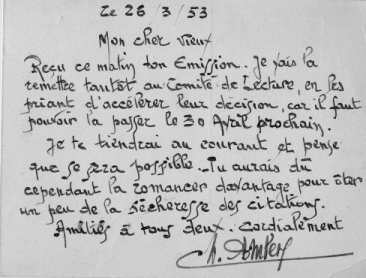 Le 26 / 3 / 53
Mon cher vieux
Reçu ce matin ton Emission. Je vais la
remettre tantôt au Comité de Lecture, en les
priant d'accélérer leur décision, car il faut
pouvoir la passer le 30 Avril prochain.
Je te tiendrai au courant et pense
que se sera possible. Tu aurais dû
cependant la romancer davantage pour ôter
un peu de la sécheresse des citations.
Amitiés à tous deux. Cordialement